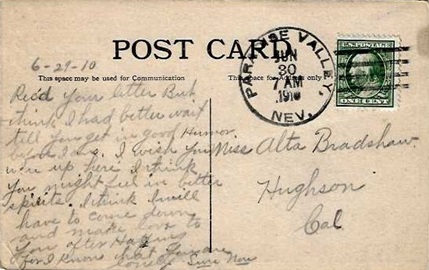 6-29-10
POST CARD
This space may be used for Communication
This space for Address only
PARADISE VALLEY,
JUN
30
7 AM
1910
NEV.
U.S. POSTAGE
ONE CENT
Rec'd Your letter But
think I had better wait
till You get in good Humor
before I ans. I wish You
were up here I think
You might get in better
spirits. I think I will
have to come down
and make love to
You after
for I know that You are
lonely Sure Now
Miss Alta Bradshaw.
Hughson
Cal